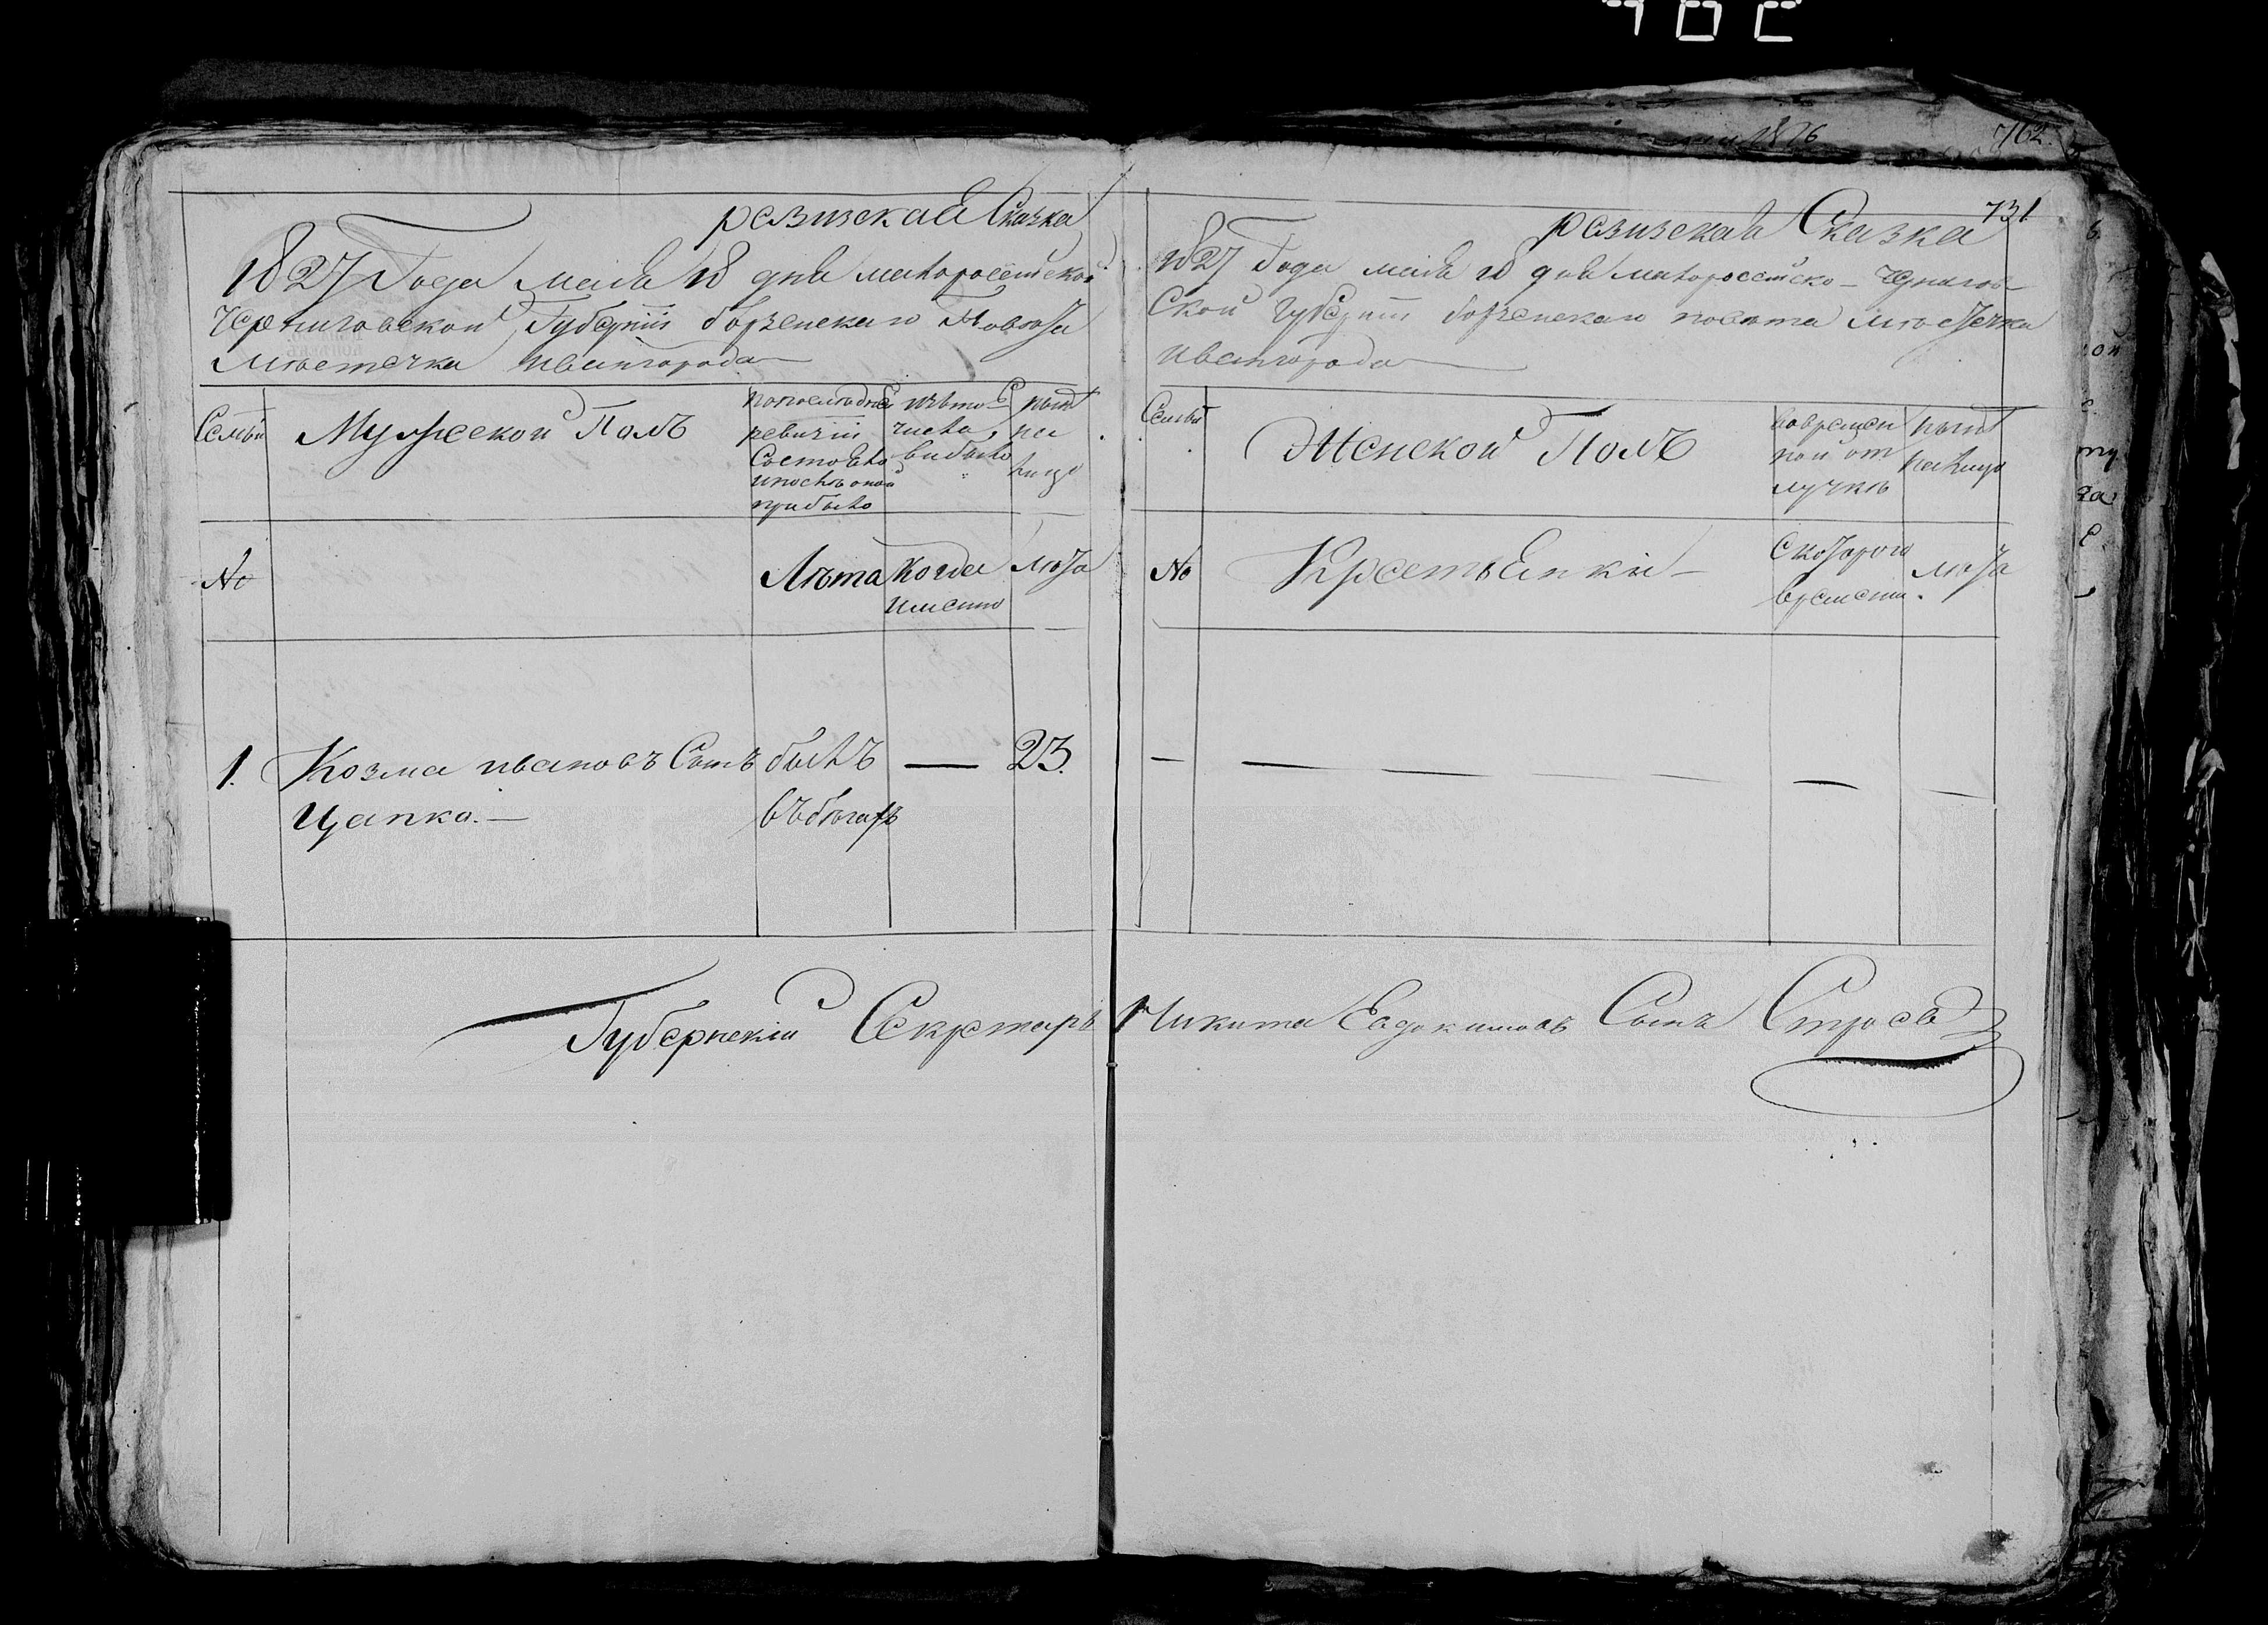 762.
731
ревизская Сказка
1827 Года маія 18 дня малороссійской
Черниговской Губерніи борзенскаго Повѣта
мѣстечка ивангорода
Семьи
Мужеской Полъ
попоследней
ревизіи
Состояло
ипослѣ оной
прибыло
изъто
числа
выбыло
нынѣ
на
лицо
№
Лѣта
когда
именно
лѣта
1. Козма ивановъ Сынъ
Цапко.
былъ
въбѣгахъ
—
23.
ревизская Сказка
1827 Года маія 18 дня малороссійско-Чернигов-
Ской Губерніи борзенскаго повѣта мѣстечка
ивангорода
Семьи
Женской Полъ
вовремен
ной от
лучкѣ
нынѣ
налицо
№
Крестьянки
Скоторого
времени.
лѣта
— — — — — — — —
Губернскій Секретарь Никита Евдокимовъ Сынъ